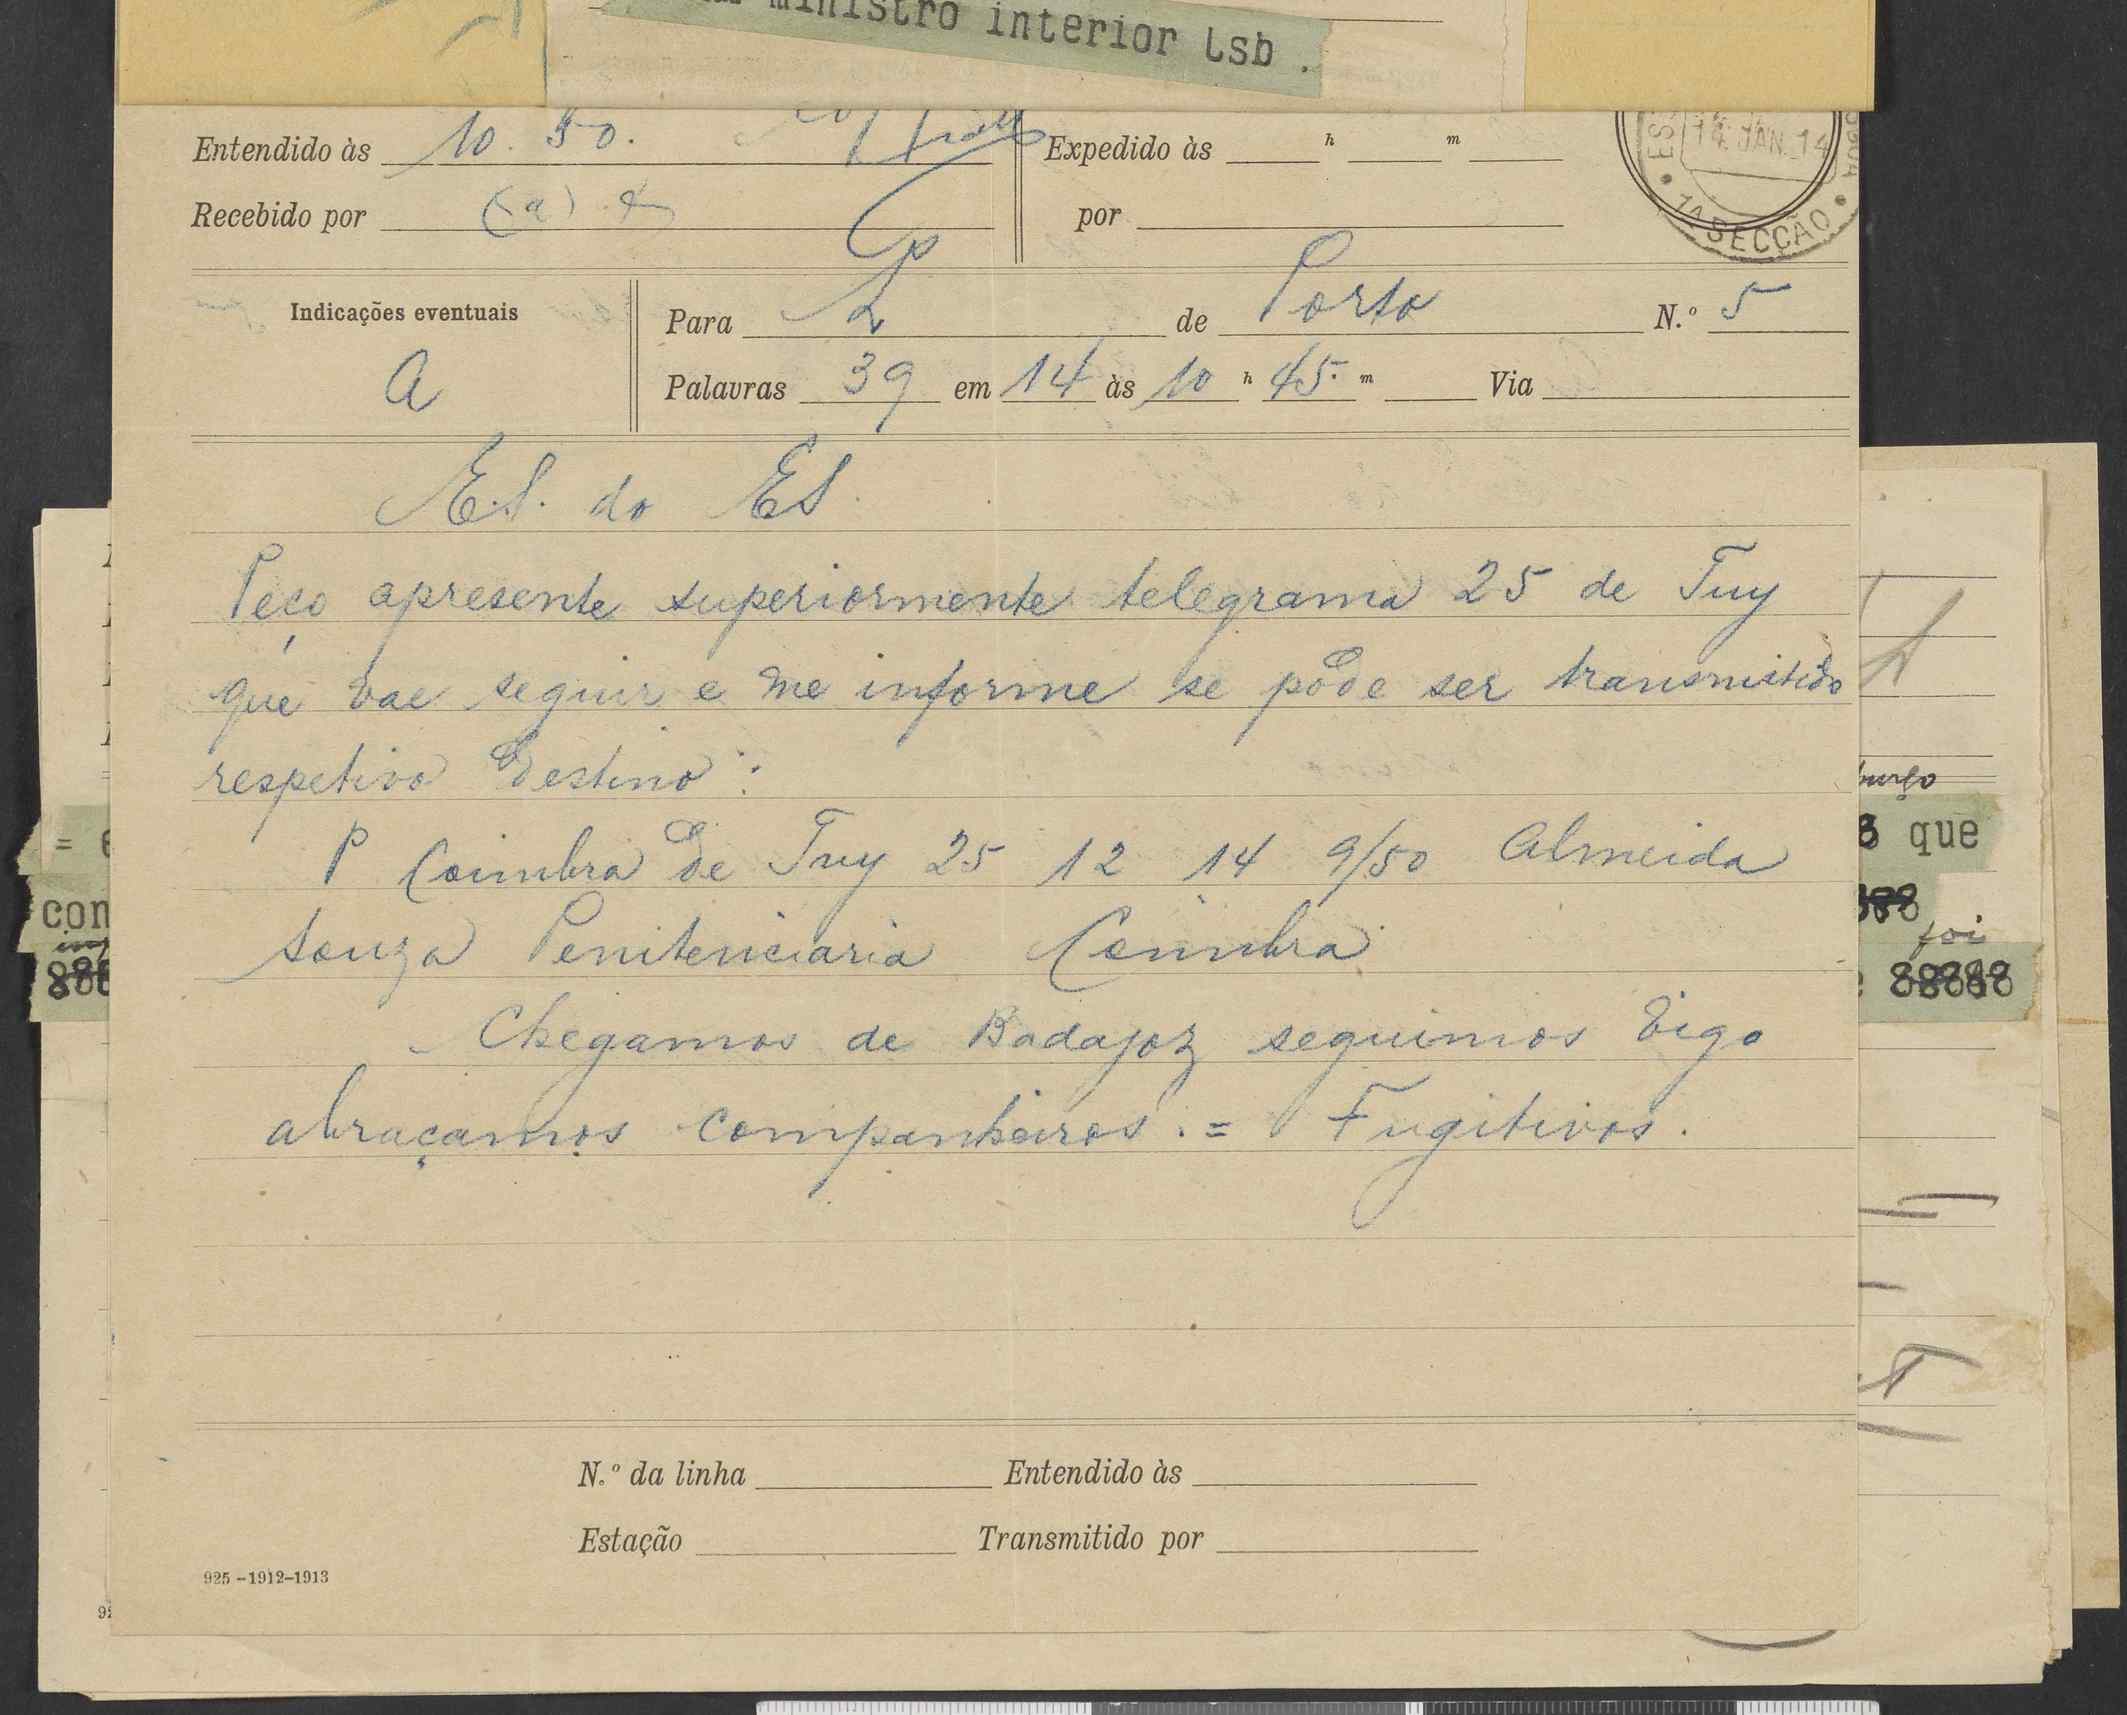 ministro interior Lsb .
Entendido às 10. 50.
Expedido às h m
14 JAN. 14
1A SECÇÃO
Recebido por (a)
por
Indicações eventuais
A
Para de Porto N.º 5
Palavras 39 em 14 às 10 h 45 m Via
E.S. do ES
Peço apresente superiormente telegrama 25 de Tuy
que vae seguir e me informe se pode ser transmitido
respetivo destino:
P Coimbra de Tuy 25 12 14 9/50 Almeida
Souza Penitenciaria Coimbra
Chegamos de Badajoz seguimos Vigo
abraçamos companheiros. = Fugitivos.
que
con
foi
N.º da linha Entendido às
Estação Transmitido por
925 -1912-1913